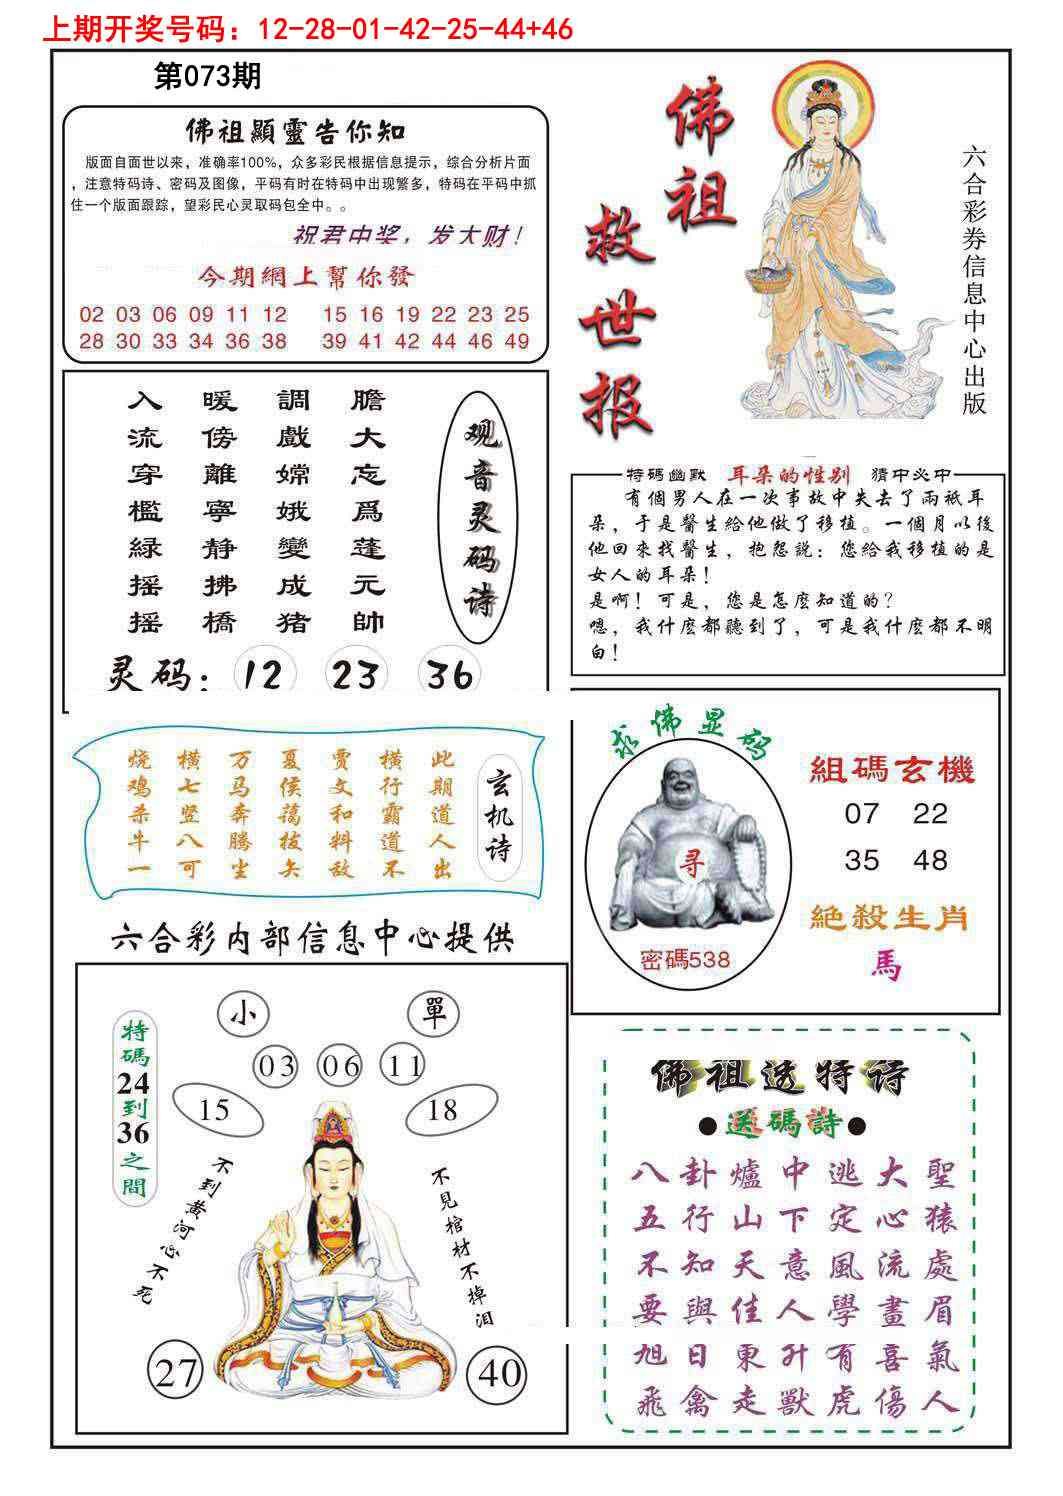 上期开奖号码：12-28-01-42-25-44+46
第073期
佛祖顯靈告你知
版面自面世以来，准确率100%，众多彩民根据信息提示，综合分析片面
，注意特码诗、密码及图像，平码有时在特码中出现繁多，特码在平码中抓
住一个版面跟踪，望彩民心灵取码包全中。。
祝君中奖，发大财！
今期網上幫你發
02 03 06 09 11 12 15 16 19 22 23 25
28 30 33 34 36 38 39 41 42 44 46 49
佛祖
救世报
六合彩券信息中心出版
膽大忘爲蓬元帥
調戲嫦娥變成猪
暖傍離寧静拂橋
入流穿檻緑摇摇
观音灵码诗
灵码：12 23 36
特碼幽默 耳朵的性别 猜中必中
有個男人在一次事故中失去了兩祇耳
朵，于是醫生給他做了移植。一個月以後
他回來找醫生，抱怨説：您給我移植的是
女人的耳朵！
是啊！可是，您是怎麽知道的？
嗯，我什麽都聽到了，可是我什麽都不明
白！
玄机诗
此期道人出
横行霸道不
贾文和料敌
夏侯蔼拔矢
万马奔腾生
横七竖八可
烧鸡杀牛一
求佛显码
寻
密碼538
組碼玄機
07 22
35 48
絕殺生肖
馬
六合彩内部信息中心提供
特碼24到36之間
小 單
03 06 11
15 18
不到黄河心不死
不见棺材不掉泪
27 40
佛祖透特诗
●送碼詩●
八卦爐中逃大聖
五行山下定心猿
不知天意風流處
要與佳人學畫眉
旭日東升有喜氣
飛禽走獸虎傷人